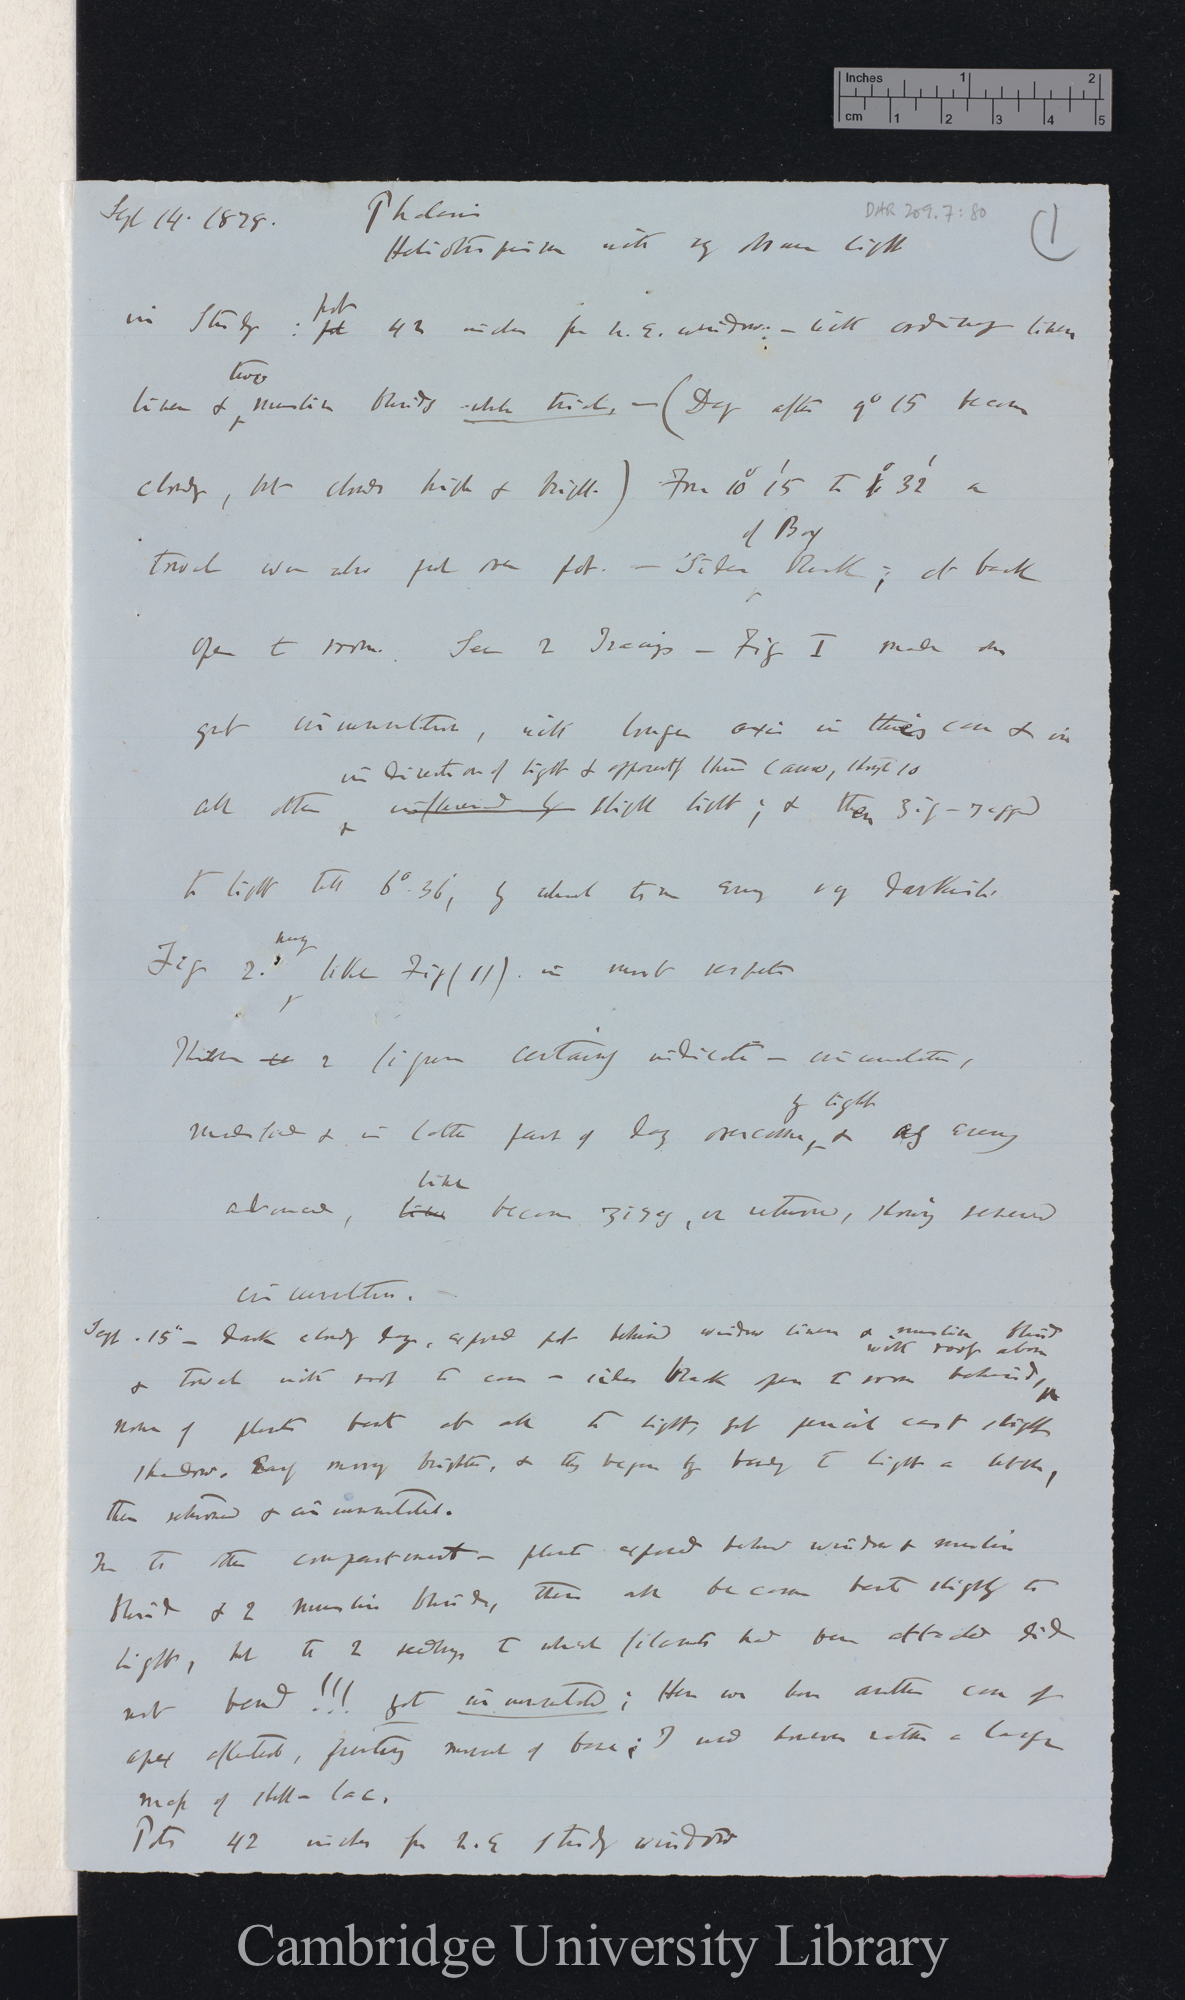 Inches 1 2
cm 1 2 3 4 5
DAR 209.7:80
Sept 14. 1878. Phalaris
(1
Heliotropism with very obscure light
in Study : pot 42 inches from N.E. window: — with ordinary linen
linen & two muslin blinds — (Day after 9° 15 became
cloudy, but clouds high & bright.) From 10° 15' to 32' a
was also put over pot. — Sides of Box black; at back
open to room. See 2 Tracings — Fig I made one
great circumnutation, with longer axis in this case & in
all others in direction of light & apparently thus caused, though so
slight light; & then zig-zagged
to light till 6°.36', by which time every very darkish.
Fig 2. very like Fig (11). in most respects
These 2 figures certainly indicate — circumnutation,
modified & in latter part of day overcome by light, & as evening
advanced, line became zigzag, or returned, showing renewed
circumnutation. —
Sept. 15th — Dark cloudy day, exposed pot behind window linen & muslin blind
with roof above
& with roof to case — sides black open to room behind,
none of plants bent at all to light, yet pencil cast slight
shadow. Early morning brighter, & they began by bending to light a little,
then returned & circumnutated.
In the other compartment — plants exposed behind window & muslin
blind & 2 muslin blinds, these all became bent slightly to
light, but the 2 seedlings to which filaments had been attached did
not bend!!! yet circumnutated; Here we have another case of
apex affected, preventing movement of base; I used however rather a large
mass of shell-lac.
Pots 42 inches from N.E study window
Cambridge University Library